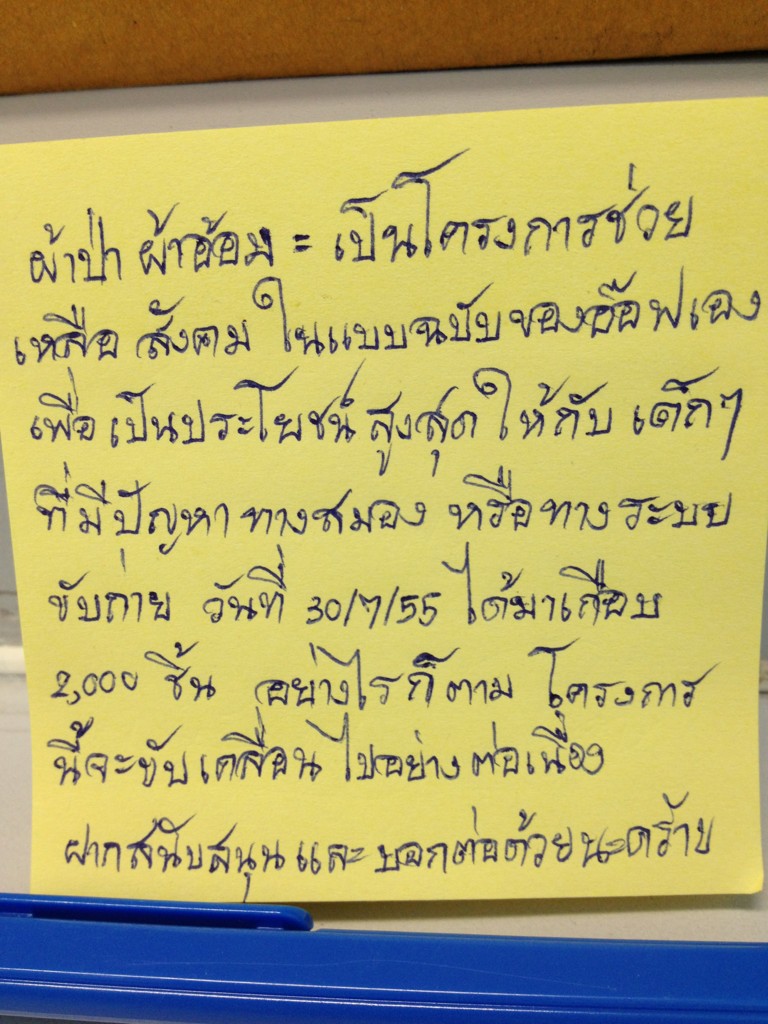 ผ้าป่า ผ้าอ้อม = เป็นโครงการช่วย
เหลือ สังคม ในแบบฉบับของอ๊อฟเอง
เพื่อ เป็นประโยชน์ สูงสุด ให้กับ เด็กๆ
ที่มีปัญหา ทางสมอง หรือทางระบบ
ขับถ่าย วันที่ 30/7/55 ได้มาเกือบ
2,000 ชิ้น อย่างไรก็ตาม โครงการ
นี้จะขับเคลื่อนไปอย่างต่อเนื่อง
ฝากสนับสนุนและ บอกต่อด้วยนะคร้าบ